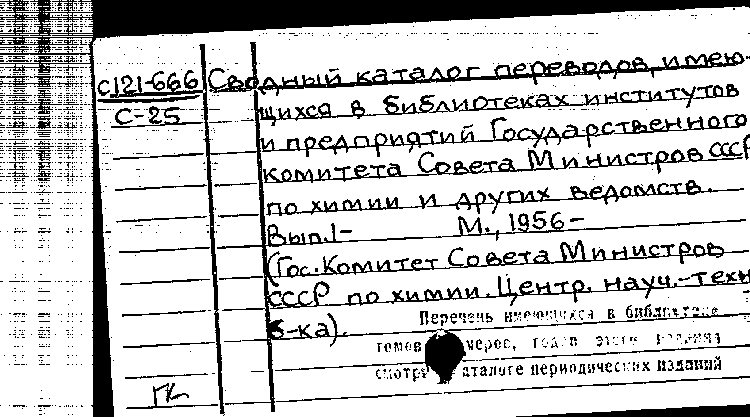 С121-666 Сводный каталог переводов, имею-
С-25 щихся в библиотеках институтов
и предприятий Государственного
комитета Совета Министров СССР
по химии и других ведомств.
Вып.1- М., 1956-
(Гос. Комитет Совета Министров
СССР по химии. Центр. науч.-техн
б-ка).
Перечень имеющихся в библиотеке
томов
смотр аталоге периодических изданий